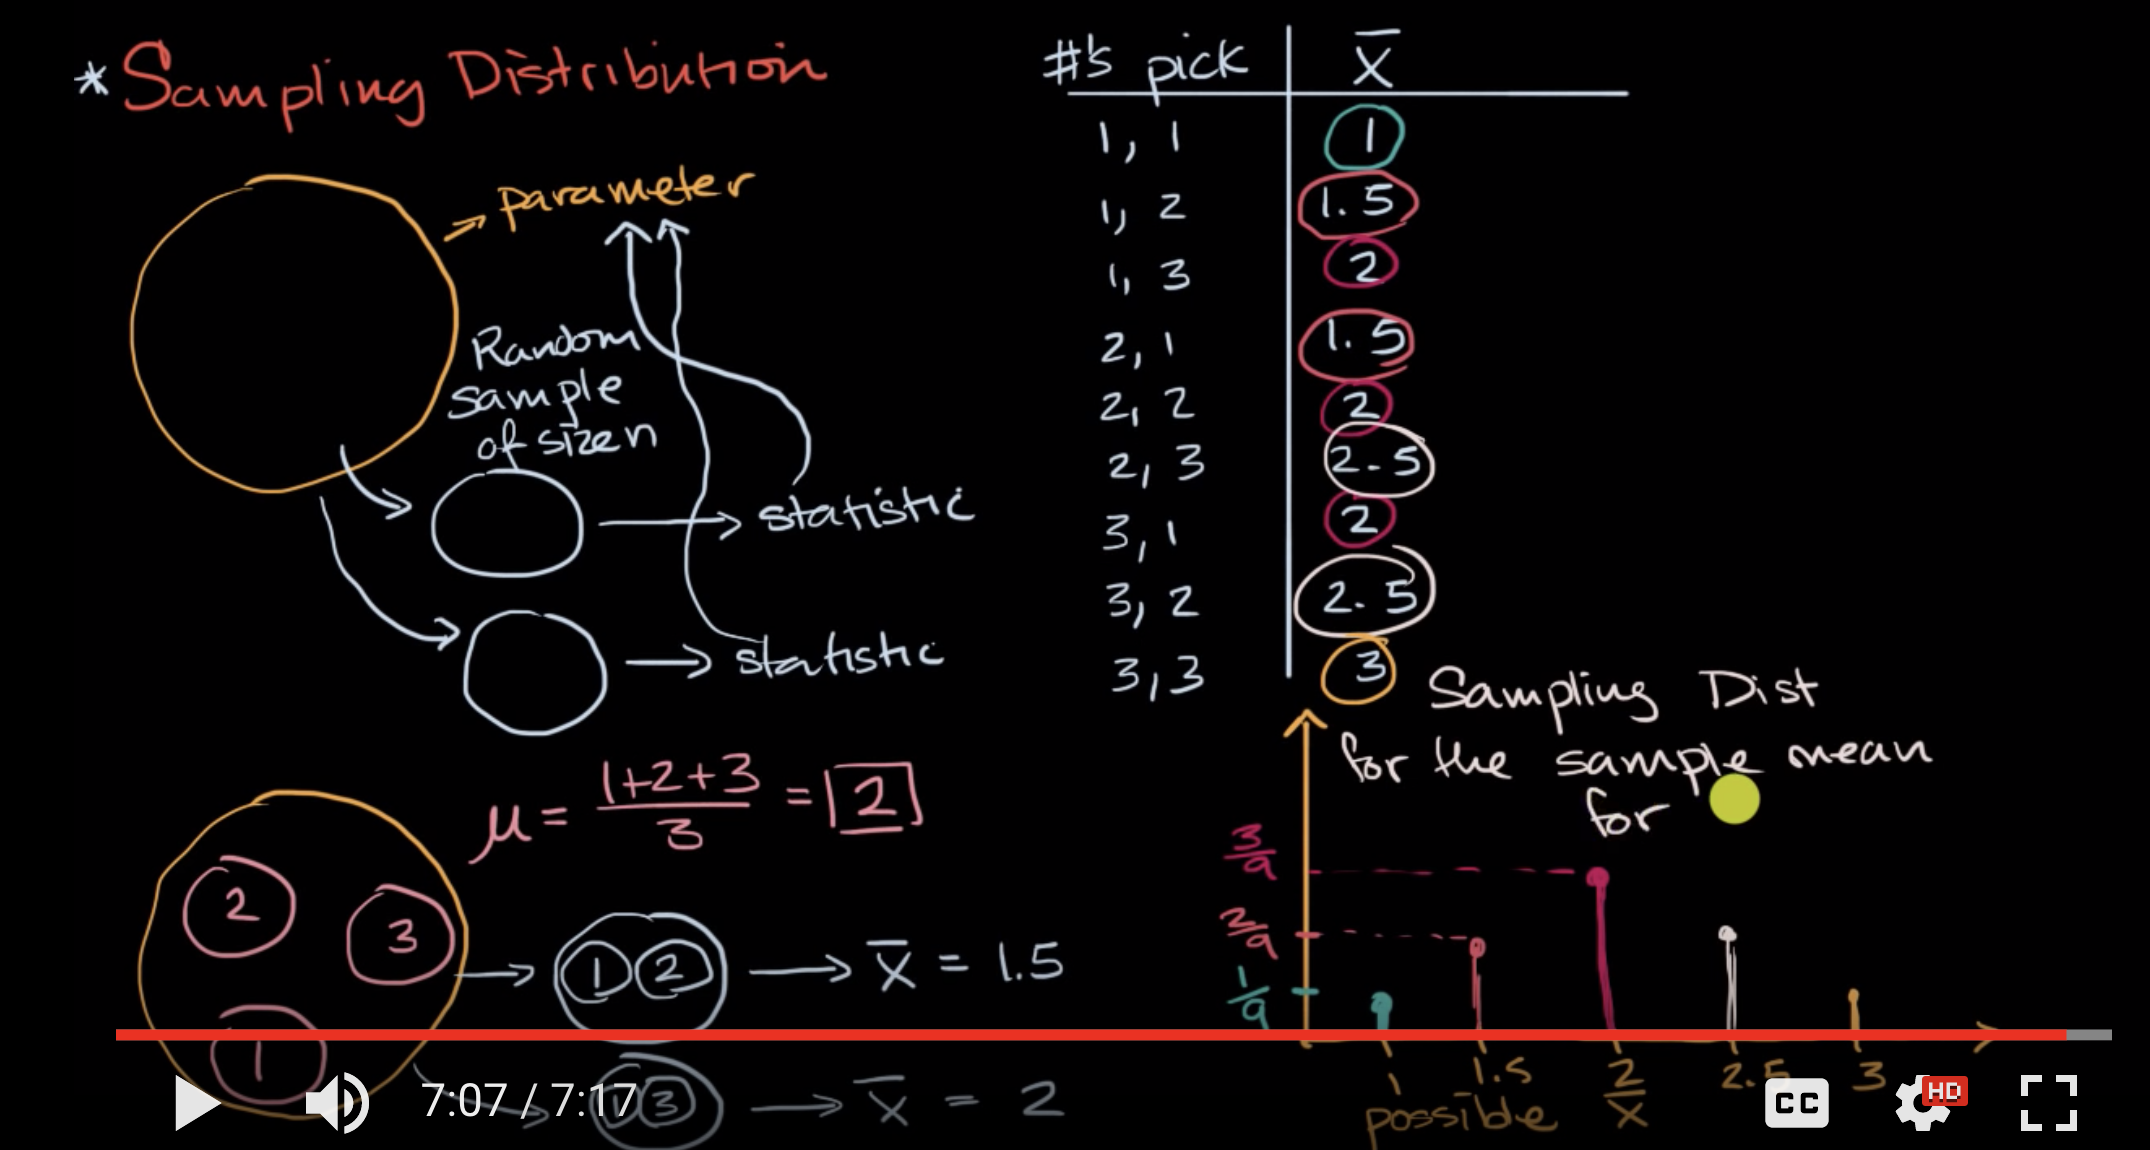 * Sampling Distribution
→ parameter
Random
sample
of size n
→ statistic
→ statistic
#'s pick | x̄
1, 1 | 1
1, 2 | 1.5
1, 3 | 2
2, 1 | 1.5
2, 2 | 2
2, 3 | 2.5
3, 1 | 2
3, 2 | 2.5
3, 3 | 3
μ = (1+2+3)/3 = 2
2
3
1
1 2 → x̄ = 1.5
1 3 → x̄ = 2
Sampling Dist
for the sample mean
for
3/9
2/9
1/9
1 1.5 2 2.5 3
possible x̄
7:07 / 7:17
CC
HD